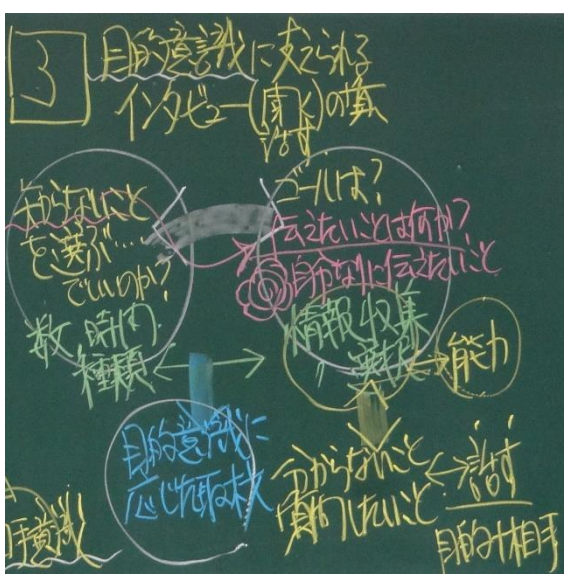 3
目的意識に支えられる
インタビュー(聞く)の文
話す
知らないこと
を選ぶ…
でいいのか?
数 時間
種類
ゴールは?
伝えたいことは何か?
自分なりに伝えたいこと
情報収集
選択
能力
目的意識に
応じた取材
分からないこと
質問したいこと
話す
目的 相手
意識